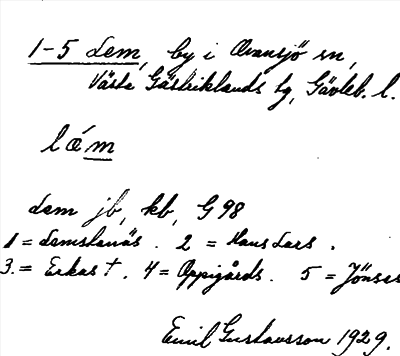 1-5 Lem, by i Ovansjö sn,
Västa Gästriklands tg, Gävleb. l.
lǽm
Lem jb, kb, G 98
1 = Lemstanäs. 2 = Hans Lars.
3. = Erkas †. 4 = Oppigårds. 5 = Jönses
Emil Gustavsson 1929.